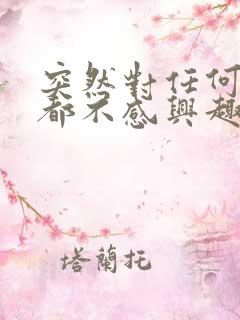 突然對任何
都不感興趣
塔蘭托